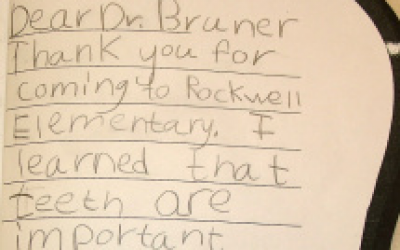 Dear Dr. Bruner
Thank you for
coming to Rockwell
Elementary. I
learned that
teeth are
important